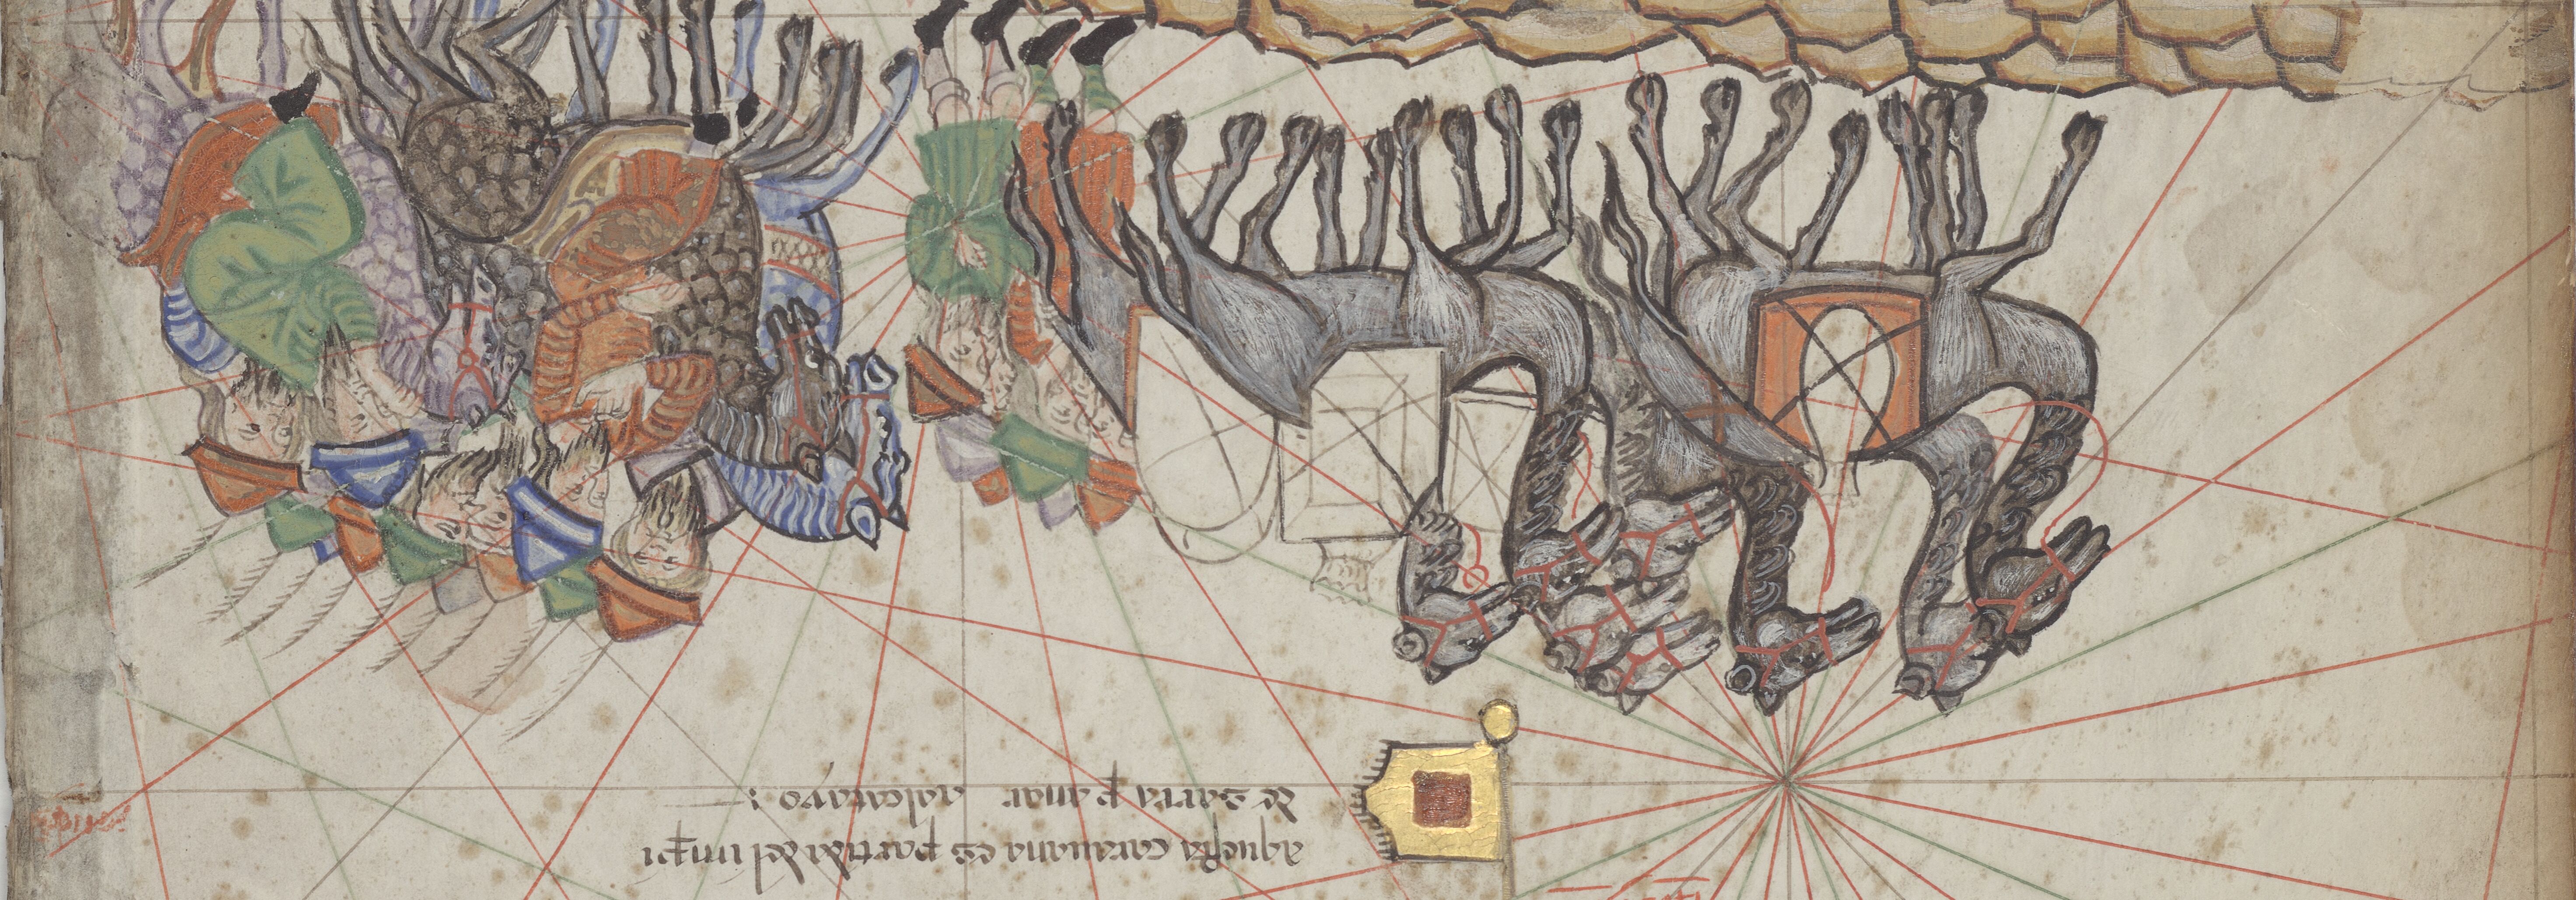 aquesta carauana es partida del imꝑi
de sarra ꝑ anar aalcatayo :